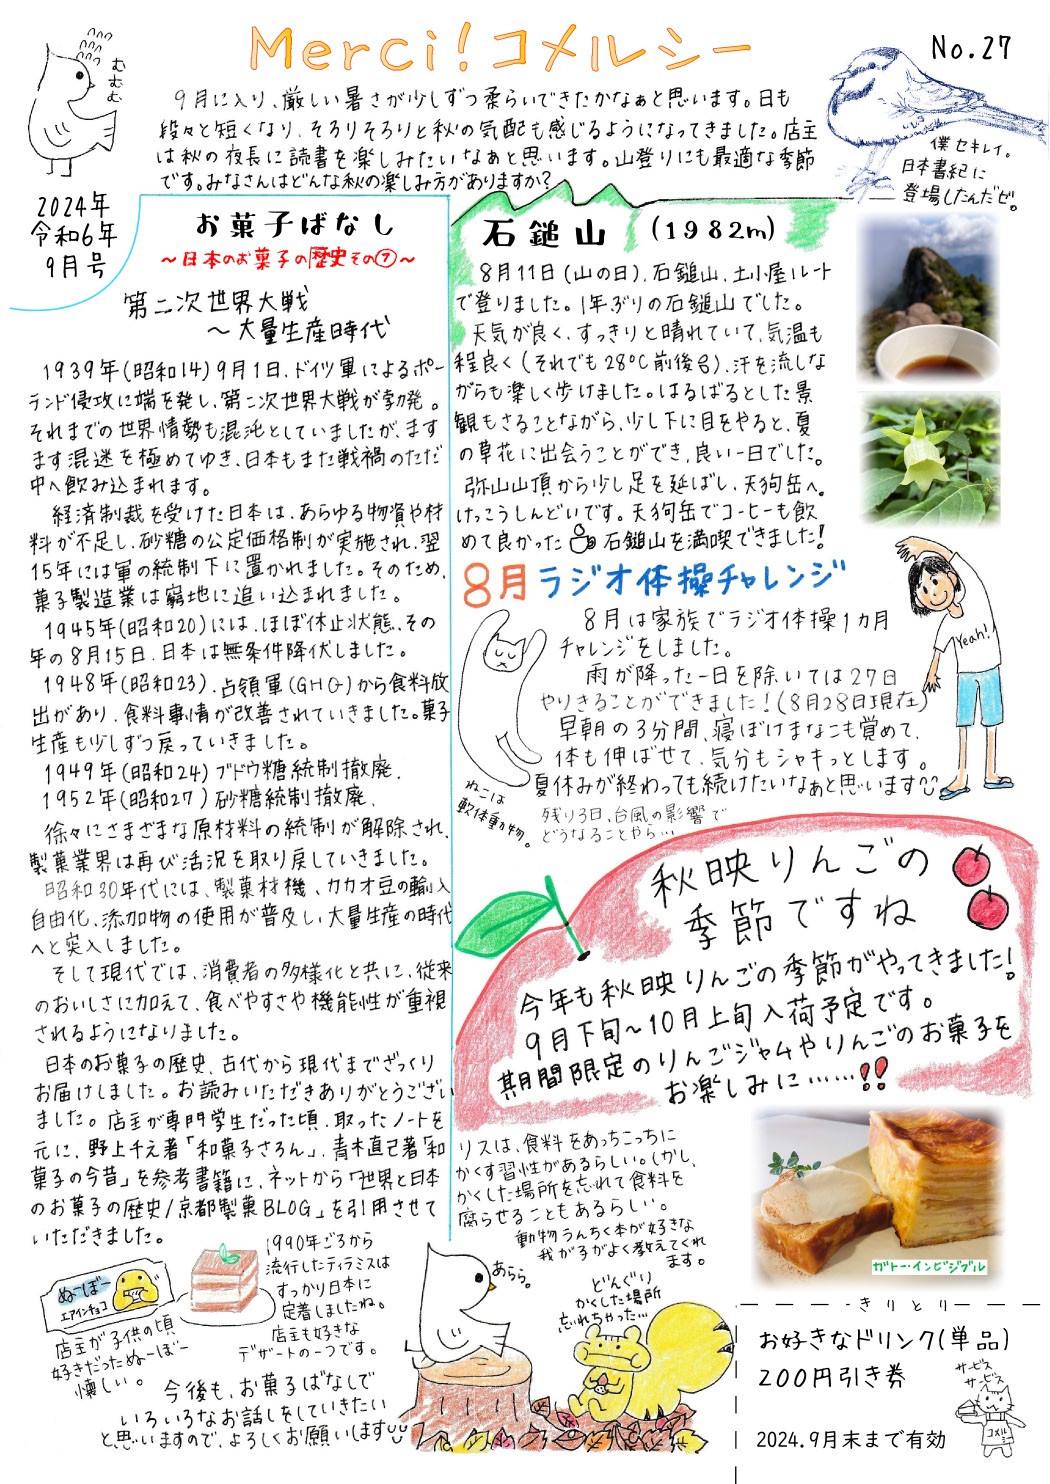 Merci!コメルシー
No.27
むむむ
9月に入り、厳しい暑さが少しずつ柔らいできたかなぁと思います。日も
段々と短くなり、そろりそろりと秋の気配も感じるようになってきました。店主
は秋の夜長に読書を楽しみたいなぁと思います。山登りにも最適な季節
です。みなさんはどんな秋の楽しみ方がありますか?
僕セキレイ。
日本書紀に
登場したんだぜ。
2024年
令和6年
9月号
お菓子ばなし
～日本のお菓子の歴史その⑦～
第二次世界大戦
～大量生産時代
1939年(昭和14)9月1日、ドイツ軍によるポー
ランド侵攻に端を発し、第二次世界大戦が勃発。
それまでの世界情勢も混沌としていましたが、ます
ます混迷を極めてゆき、日本もまた戦禍のただ
中へ飲み込まれます。
経済制裁を受けた日本は、あらゆる物資や材
料が不足し、砂糖の公定価格制が実施され、翌
15年には軍の統制下に置かれました。そのため、
菓子製造業は窮地に追い込まれました。
1945年(昭和20)には、ほぼ休止状態、その
年の8月15日、日本は無条件降伏しました。
1948年(昭和23)、占領軍(GHQ)から食料放
出があり、食料事情が改善されていきました。菓子
生産も少しずつ戻っていきました。
1949年(昭和24)ブドウ糖統制撤廃、
1952年(昭和27)砂糖統制撤廃、
徐々にさまざまな原材料の統制が解除され、
製菓業界は再び活況を取り戻していきました。
昭和30年代には、製菓材機、カカオ豆の輸入
自由化、添加物の使用が普及し、大量生産の時代
へと突入しました。
そして現代では、消費者の多様化と共に、従来
のおいしさに加えて、食べやすさや機能性が重視
されるようになりました。
日本のお菓子の歴史、古代から現代までざっくり
お届けしました。お読みいただきありがとうござい
ました。店主が専門学生だった頃、取ったノートを
元に、野上千え著「和菓子さろん」、青木直己著「和
菓子の今昔」を参考書籍に、ネットから「世界と日本
のお菓子の歴史/京都製菓BLOG」を引用させて
いただきました。
ぬーぼー
エアインチョコ
店主が子供の頃
好きだったぬーぼー
懐しい。
1990年ごろから
流行したティラミスは
すっかり日本に
定着しましたね。
店主も好きな
デザートの一つです。
今後も、お菓子ばなしで
いろいろなお話しをしていきたい
と思いますので、よろしくお願いします
石鎚山 (1982m)
8月11日(山の日)、石鎚山、土小屋ルート
で登りました。1年ぶりの石鎚山でした。
天気が良く、すっきりと晴れていて、気温も
程良く(それでも28℃前後台)、汗を流しな
がらも楽しく歩けました。はるばるとした景
観もさることながら、少し下に目をやると、夏
の草花に出会うことができ、良い一日でした。
弥山山頂から少し足を延ばし、天狗岳へ。
けっこうしんどいです。天狗岳でコーヒーも飲
めて良かった 石鎚山を満喫できました!
8月ラジオ体操チャレンジ
8月は家族でラジオ体操1カ月
チャレンジをしました。
雨が降った一日を除いては27日
やりきることができました!(8月28日現在)
早朝の3分間、寝ぼけまなこも覚めて、
体も伸ばせて、気分もシャキっとします。
夏休みが終わっても続けたいなぁと思います
残り3日、台風の影響で
どうなることやら…
ねこは
軟体動物。
Yeah!
秋映りんごの
季節ですね
今年も秋映りんごの季節がやってきました!
9月下旬～10月上旬入荷予定です。
期間限定のりんごジャムやりんごのお菓子を
お楽しみに……!!
リスは、食料をあっちこっちに
かくす習性があるらしい。しかし、
かくした場所を忘れて食料を
腐らせることもあるらしい。
動物うんちく本が好きな
我が子がよく教えてくれ
ます。
あらら。
どんぐり
かくした場所
忘れちゃった…
ガトー・インビジブル
きりとり
お好きなドリンク(単品)
200円引き券
サービス
サービス
コメル
シー
2024.9月末まで有効